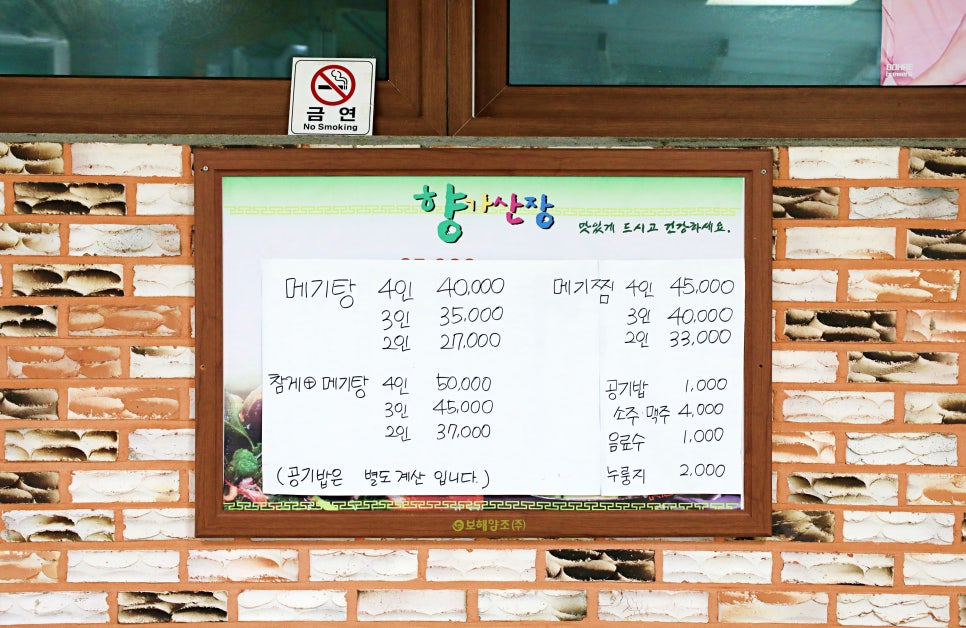 금 연
No Smoking
향가산장
맛있게 드시고 건강하세요.
메기탕 4인 40,000
3인 35,000
2인 27,000
참게⊕메기탕 4인 50,000
3인 45,000
2인 37,000
(공기밥은 별도 계산 입니다.)
메기찜 4인 45,000
3인 40,000
2인 33,000
공기밥 1,000
소주·맥주 4,000
음료수 1,000
누룽지 2,000
보해양조(주)